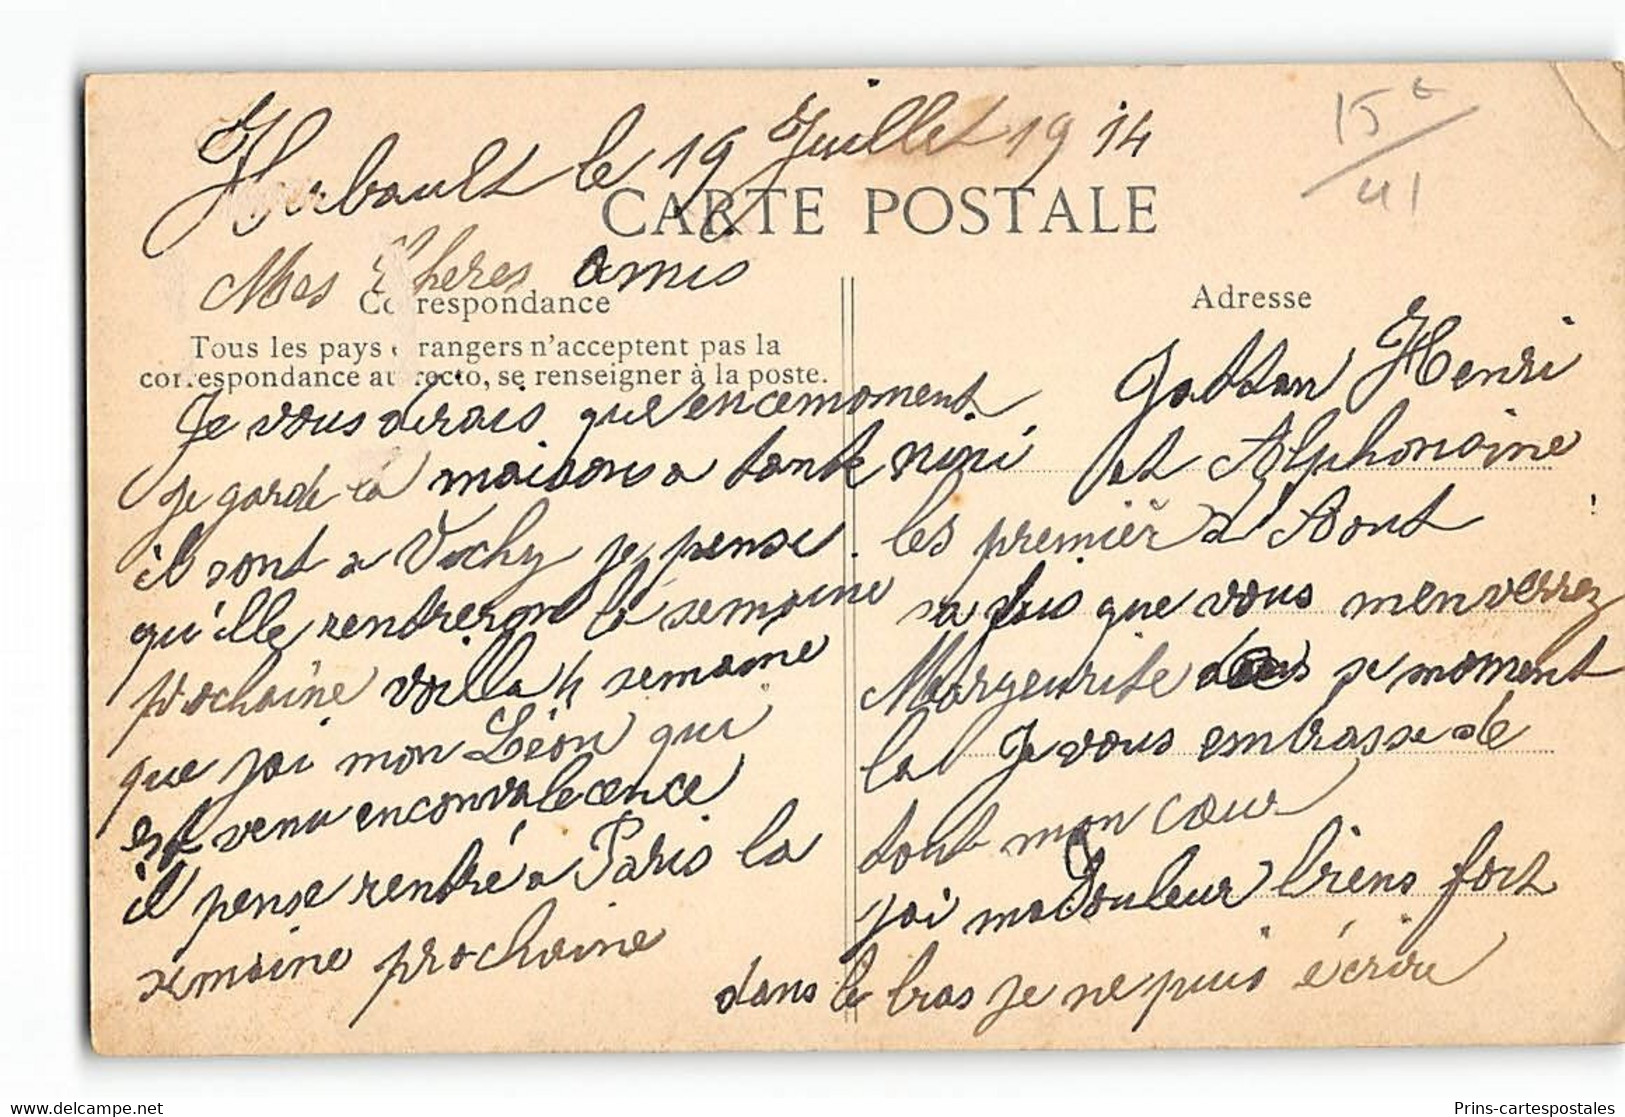 Herbault le 19 Juillet 1914
15€
41
CARTE POSTALE
Mes Chères amis
Correspondance
Adresse
Tous les pays étrangers n'acceptent pas la
correspondance au recto, se renseigner à la poste.
Je vous dirais que encemoment
je garde la maisons a tante nini
il sont a Vichy je pense
qu'ille rendreron la semaine
prochaine voilla 4 semaine
que jai mon Léon qui
est venu enconvalecence
il pense rentré a Paris la
semaine prochaine
Henri
et Alphonsine
les premier d'Aout
sa fais que vous menverrez
Margeurite dans se moment
la Je vous embrasse de
tout mon cœur
jai ma Douleur biens fort
dans le bras je ne puis écrire
Prins-cartespostales
www.delcampe.net